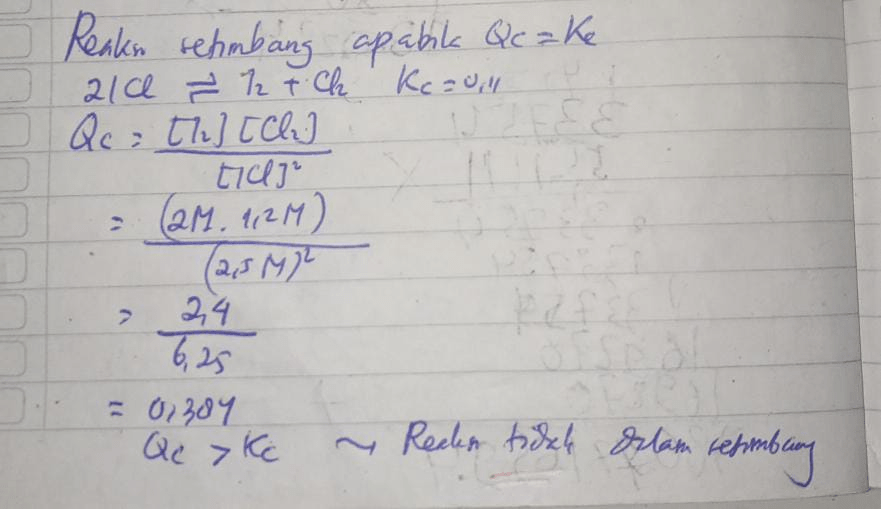 Reaksi setimbang apabila Qc = Kc
2ICl ⇌ I2 + Cl2 Kc = 0,11
Qc = [I2] [Cl2]
[ICl]²
= (2M . 1,2M)
(2,5 M)²
= 2,4
6,25
= 0,384
Qc > Kc ~> Reaksi tidak dalam setimbang